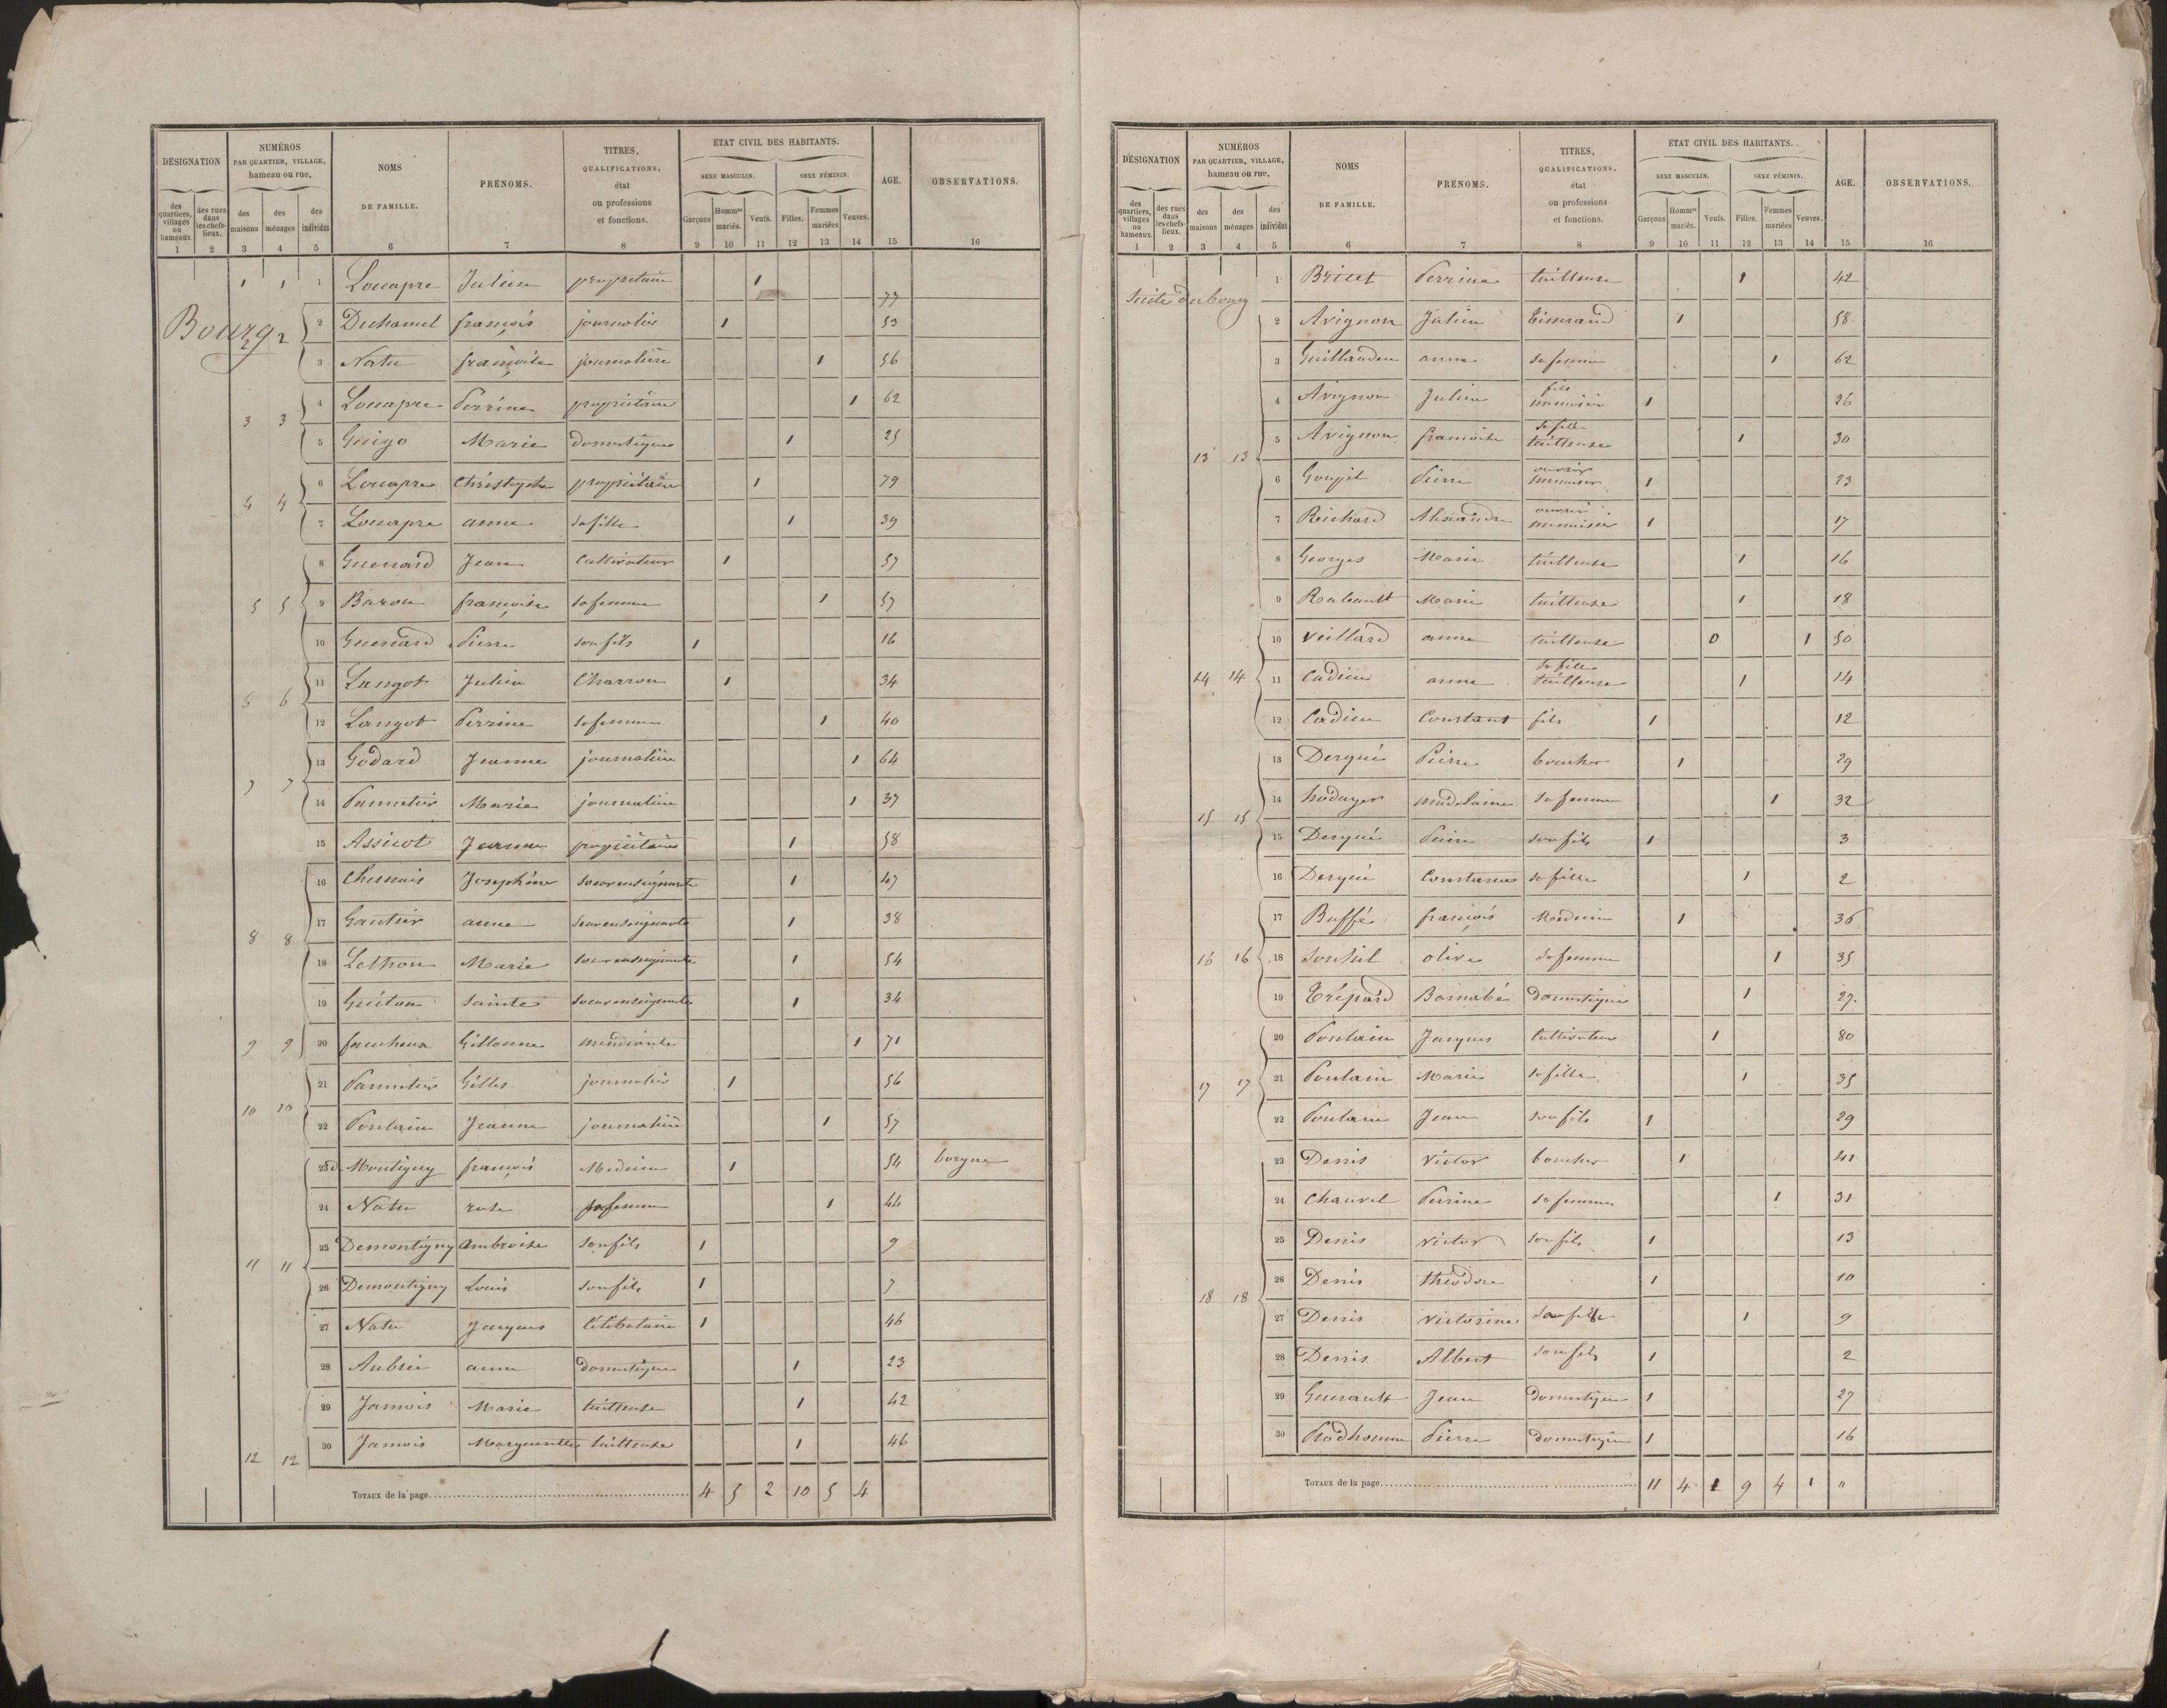 DÉSIGNATION
NUMÉROS
PAR QUARTIER, VILLAGE,
hameau ou rue,
NOMS
DE FAMILLE.
PRÉNOMS.
TITRES,
QUALIFICATIONS,
état
ou professions
et fonctions.
ÉTAT CIVIL DES HABITANTS.
SEXE MASCULIN.
SEXE FÉMININ.
AGE.
OBSERVATIONS.
des quartiers, villages ou hameaux
des rues dans les chefs-lieux.
des maisons
des ménages
des individus
Garçons
Hommes mariés.
Veufs.
Filles.
Femmes mariées
Veuves.
1 2 3 4 5 6 7 8 9 10 11 12 13 14 15 16
Bourg
1 1 1 Louapre Julien propriétaire 1 77
2 2 2 Duhamel françois journalier 1 53
3 Natu françoise journalière 1 56
3 3 4 Louapre Perrine propriétaire 1 62
5 Guigo Marie domestique 1 25
4 4 6 Louapre Christophe propriétaire 1 79
7 Louapre anne sa fille 1 39
5 5 8 Guenard Jean Cultivateur 1 57
9 Baron françoise sa femme 1 57
10 Guenard Pierre son fils 1 16
6 6 11 Langot Julien Charron 1 34
12 Langot Perrine sa femme 1 40
7 7 13 Godard Jeanne journalière 1 64
14 Pannetier Marie journalière 1 37
15 Assicot Jeanne propriétaire 1 58
8 8 16 Chesnais Josephine soeur enseignante 1 47
17 Gautier anne soeur enseignante 1 38
18 Lethon Marie soeur enseignante 1 54
19 Guiton Sainte soeur enseignante 1 34
9 9 20 faucheux Gillonne mendiante 1 71
10 10 21 Pannetier Gilles journalier 1 56
22 Poulain Jeanne journalière 1 57
11 11 23 d. Montigny françois Medecin 1 54 borgne
24 Natu rose sa femme 1 44
25 Demontigny Ambroise son fils 1 9
26 Demontigny Louis son fils 1 7
27 Natu Jacques Célibataire 1 46
28 Aubrée anne domestique 1 23
29 Jamois Marie tailleuse 1 42
12 12 30 Jamois Marguerite tailleuse 1 46
TOTAUX de la page 4 5 2 10 5 4
DÉSIGNATION
NUMÉROS
PAR QUARTIER, VILLAGE,
hameau ou rue,
NOMS
DE FAMILLE.
PRÉNOMS.
TITRES,
QUALIFICATIONS,
état
ou professions
et fonctions.
ÉTAT CIVIL DES HABITANTS.
SEXE MASCULIN.
SEXE FÉMININ.
AGE.
OBSERVATIONS.
des quartiers, villages ou hameaux
des rues dans les chefs-lieux.
des maisons
des ménages
des individus
Garçons
Hommes mariés.
Veufs.
Filles.
Femmes mariées
Veuves.
1 2 3 4 5 6 7 8 9 10 11 12 13 14 15 16
Suite du bourg
1 Perrine tailleuse 1 42
2 Avignon Julien tisserand 1 58
3 Guillaudeu anne sa femme 1 62
4 Avignon Julien fils menuisier 1 26
13 13 5 Avignon françoise sa fille tailleuse 1 30
6 Goupil Pierre ouvrier menuisier 1 23
7 Richard Alexandre ouvrier menuisier 1 17
8 Georges Marie tailleuse 1 16
9 Rabault Marie tailleuse 1 18
14 14 10 Veillard anne tailleuse 0 1 50
11 Cadieu anne sa fille tailleuse 1 14
12 Cadieu Constant fils 1 12
15 15 13 Dergué Pierre boucher 1 29
14 hodayer madelaine sa femme 1 32
15 Dergué Pierre son fils 1 3
16 Dergué Constance sa fille 1 2
16 16 17 Buffé françois Medecin 1 36
18 olive sa femme 1 35
19 Trépard Barnabé domestique 1 27.
17 17 20 Poulain Jacques Cultivateur 1 80
21 Poulain Marie sa fille 1 35
22 Poulain Jean son fils 1 29
18 18 23 Denis Victor boucher 1 41
24 Chauvel Perrine sa femme 1 31
25 Denis Victor son fils 1 13
26 Denis théodore 1 10
27 Denis Victorine sa fille 1 9
28 Denis Albert son fils 1 2
29 Guerault Jean Domestique 1 27
30 Prodhomme Pierre domestique 1 16
TOTAUX de la page 11 4 1 9 4 1 "